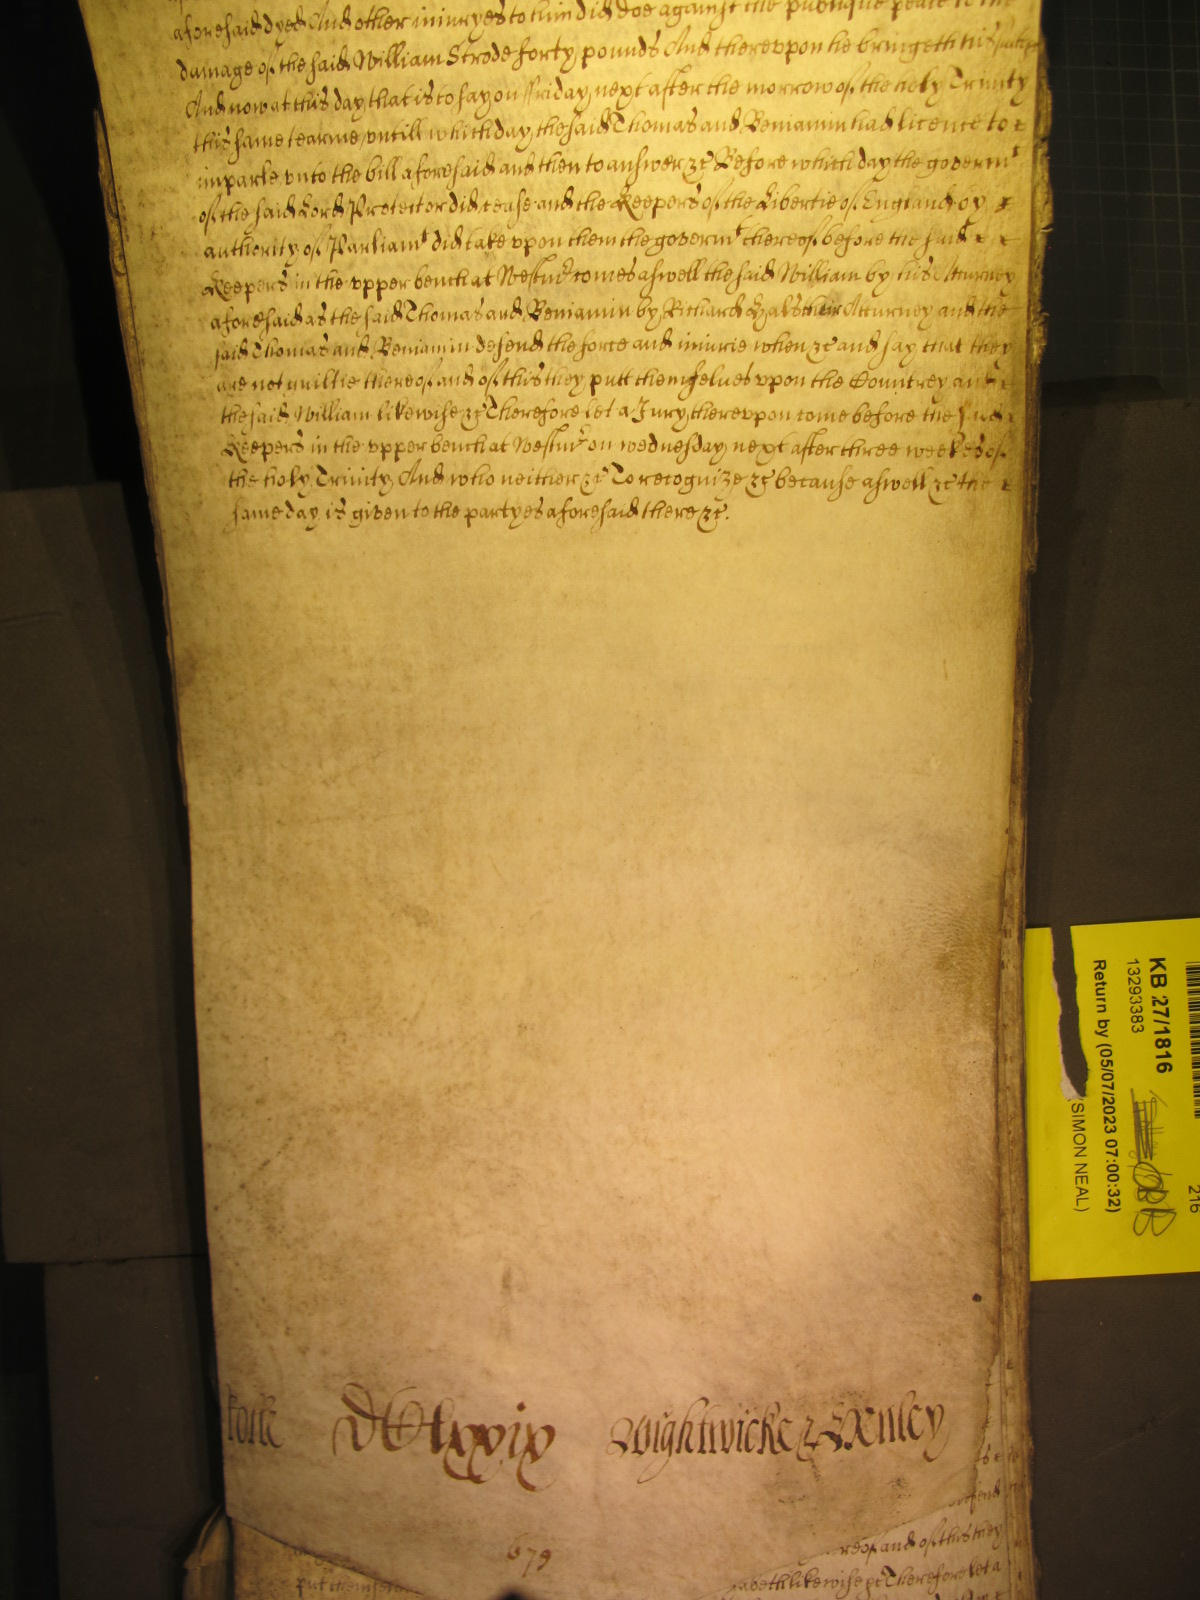 aforesaid dyed And other iniuryes to him did doe against the publique peace to the
damage of the said William Strode forty pounds And therevpon he bringeth his suite
And now at this day that is to say on ffriday next after the morrow of the holy Trinity
this same tearme vntill which day the said Thomas and Beniamin had licence to
imparle vnto the bill aforesaid and then to answer &c Before which day the governmt
of the said Lord Protector did cease and the Keepers of the Libertie of England by
authority of Parliamt did take vpon them the governmt thereof before the said
Keepers in the vpper bench at Westmr comes aswell the said William by his Atturney
aforesaid as the said Thomas and Beniamin by Richard their Atturney and the
said Thomas and Beniamin defend the force and iniurie when &c and say that they
are not guiltie thereof and of this they putt themselues vpon the Countrey and
the said William likewise &c Therefore let a Jury therevpon come before the said
Keepers in the vpper bench at Westmr on wednesday next after three weekes of
the holy Trinity And who neither &c To recognize &c because aswell &c the
same day is given to the partyes aforesaid there &c.
DClxxix Wightwicke & Henley
679
defend
reof and of this they
putt themsel
abeth likewise &c Therefore let a
KB 27/1816
13293383
Return by (05/07/2023 07:00:32)
(SIMON NEAL)
216